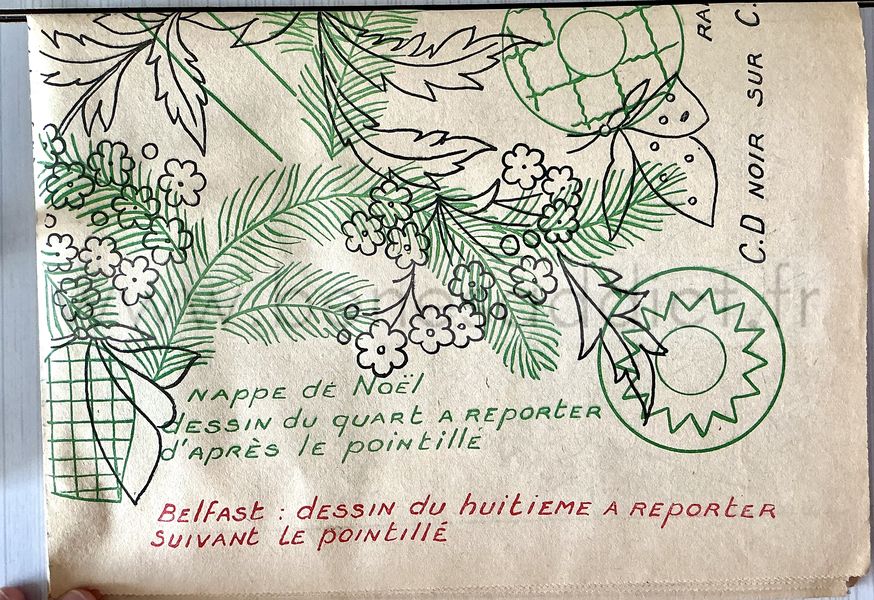 C.D NOIR SUR C.
NAPPE DE NOËL
DESSIN DU QUART A REPORTER
D'APRÈS LE POINTILLÉ
BELFAST : DESSIN DU HUITIEME A REPORTER
SUIVANT LE POINTILLÉ